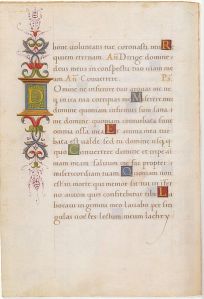 bone uoluntatis tue coronasti nos R
quiem eternam. Añ Dirige domine
deus meus in conspectu tuo uiam me
am Añ Conuertere Ps
Domine ne in furore tuo arguas me neq
in ira tua corripias me Miserere mei
domine quoniam infirmus sum sana
me domine quoniam conturbata sunt
omnia ossa mea Et anima mea tur
bata est ualde sed tu domine usque
quo Conuertere domine et eripe ani
mam meam saluum me fac propter mi
sericordiam tuam Quoniam non est
in morte qui memor sit tui in inferno
in gemitu meo lauabo per sin
gulas noctes lectum meum lachry